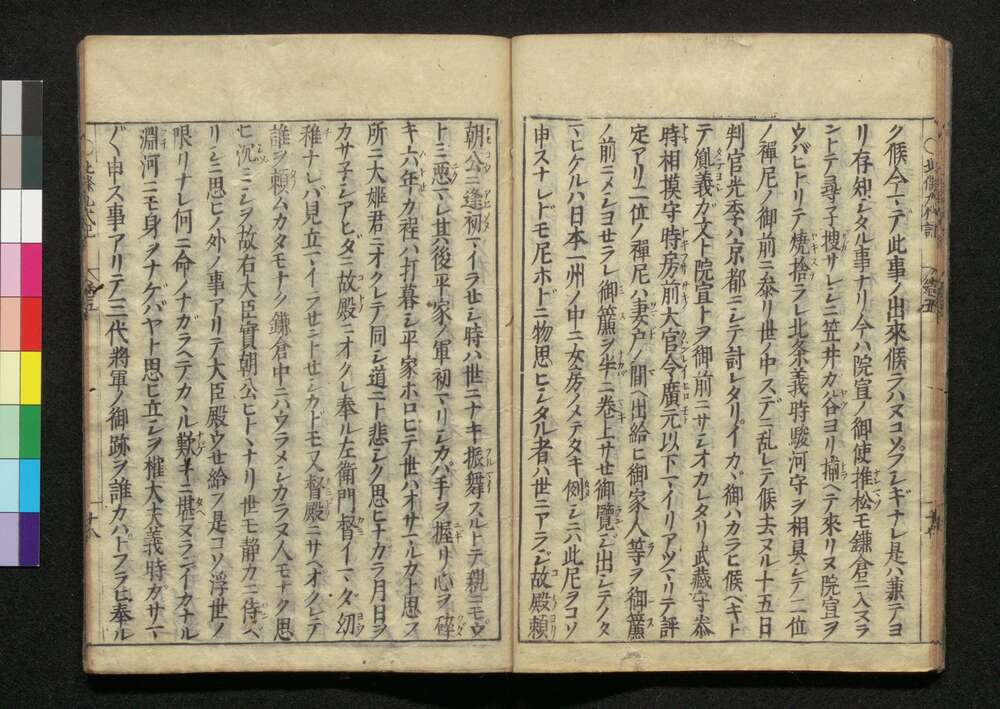 ク候今マテ此事ノ出來候ラハヌコソフシギナレ是ハ兼テヨ
リ存知シタル事ナリ今ハ院宣ノ御使推松モ鎌倉ニ入スラ
ントテ尋子捜サレシニ笠井カ谷ヨリ搦ヘテ來リヌ院宣ヲ
ウバヒトリテ焼捨ラレ北条義時駿河守ヲ相具シテ二位
ノ禪尼ノ御前ニ参リ世ノ中スデニ乱レテ候去ヌル十五日
判官光季ハ京都ニシテ討レタリイカヾ御ハカラヒ候ベキト
テ胤義ガ文ト院宣トヲ御前ニサシオカレタリ武藏守泰
時相摸守時房前大官令廣元以下イリアツマリテ評
定アリ二位ノ禪尼ハ妻戸ノ間ヘ出給ヒ御家人等ヲ御簾
ノ前ニメシヨセラレ御簾ヲ半ニ巻上サセ御覧ジ出シテノタ
マヒケルハ日本一州ノ中ニ女房ノメテタキ例シニハ此尼ヲコソ
申スナレドモ尼ホドニ物思ヒシタル者ハ世ニアラジ故殿頼
朝公ニ逢初マイラセシ時ハ世ニナキ振舞スルトテ親ニモウ
トミ悪マレ其後平家ノ軍初マリシカバ手ヲ握リ心ヲ碎
キ六年カ程ハ打暮シ平家ホロヒテ世ハオサマルカト思フ
所ニ大姫君ニオクレテ同シ道ニト悲シク思ヒナカラ月日ヲ
カサ子シアヒダニ故殿ニオクレ奉ル左衛門督イマダ幼
稚ナレバ見立マイラセントセシカドモ又督殿ニサヘオクレテ
誰ヲ頼ムカタモナク鎌倉中ニハウラメシカラヌ人モナク思
ヒ沉ミシヲ故右大臣實朝公ヒトヽナリ世モ静カニ侍ベ
リシニ思ヒノ外ノ事アリテ大臣殿ウセ給フ是コソ浮世ノ
限リナレ何ニ命ノナガラヘテカヽル歎キニ堪ヌラデイカナル
淵河ニモ身ヲナゲバヤト思ヒ立シヲ權大夫義時ガサマ
〴〵申ス事アリテ三代將軍ノ御跡ヲ誰カバトフラヒ奉ル